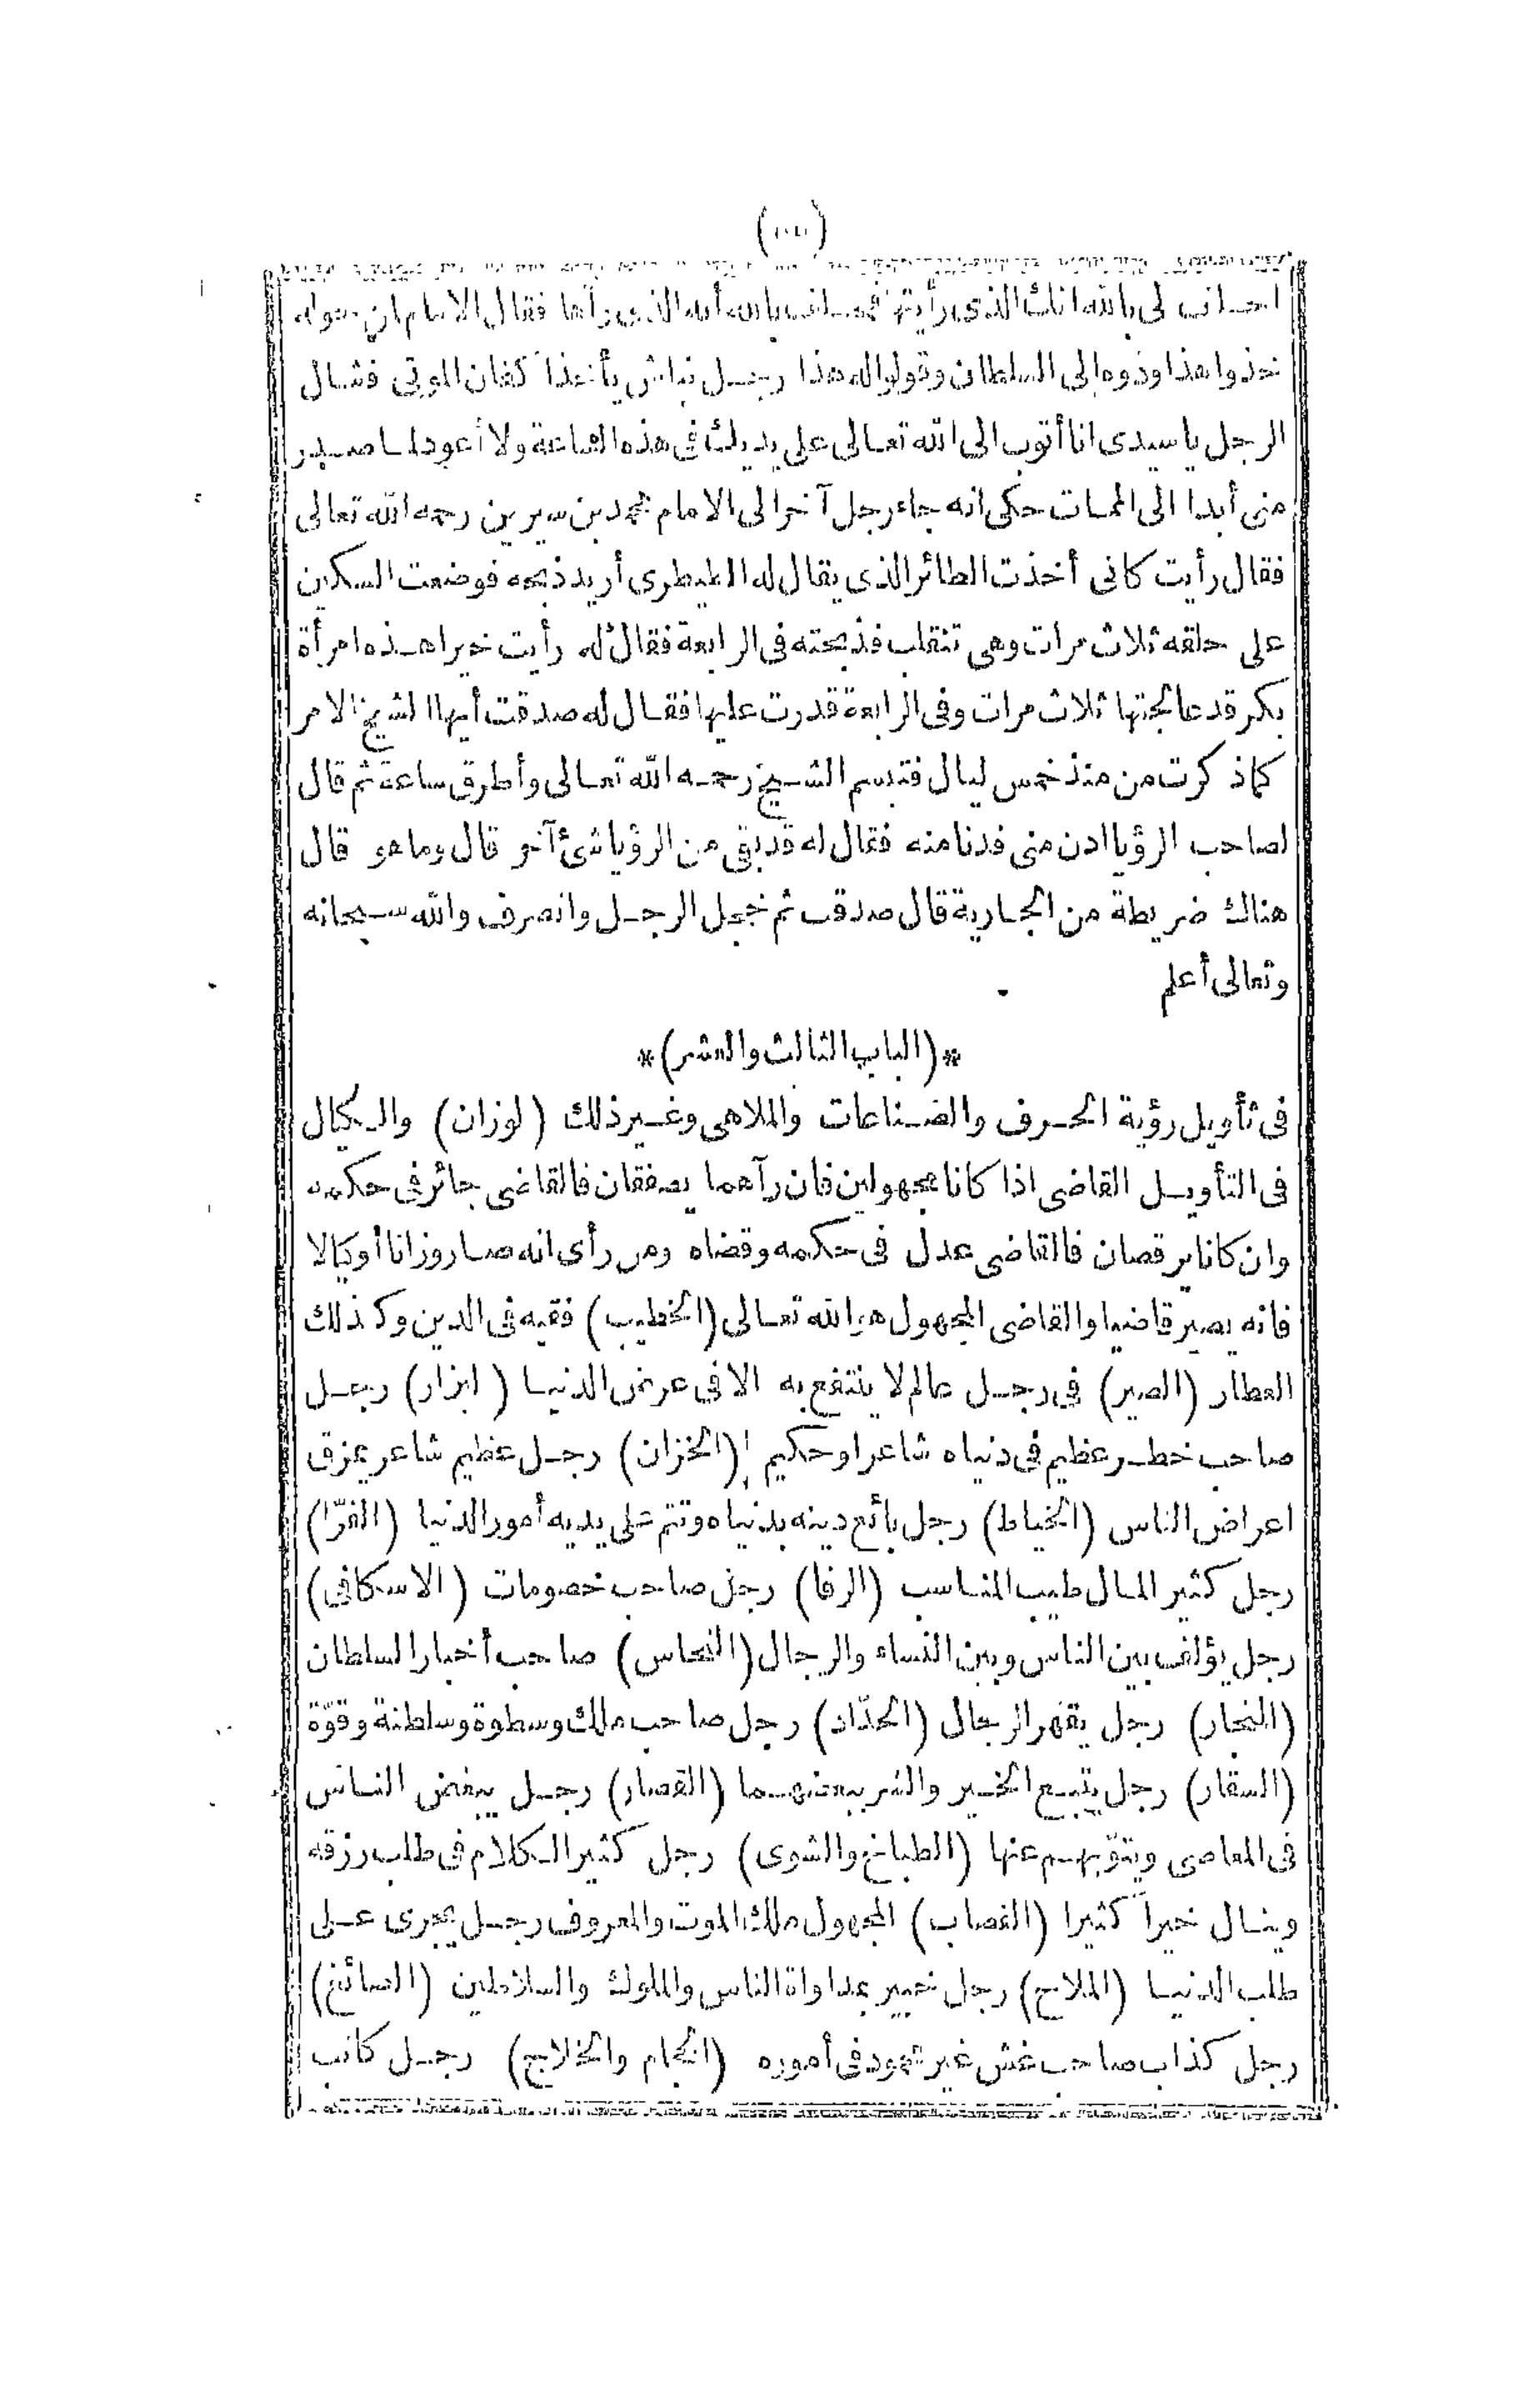 احلف لى بالله انك الذى رأيتها فحلف بالله أنه الذى رآها فقال الامام لمن حوله
خذوا هذا ودوه الى السلطان وقولوا له هذا رجل نباش يأخذ أكفان الموتى فقال
الرجل ياسيدى انا أتوب الى الله تعالى على يديك فى هذه الساعة ولا أعود لما صدر
منى أبدا الى الممات حكى انه جاء رجل آخر الى الامام محمد بن سيرين رحمه الله تعالى
فقال رأيت كانى أخذت الطائر الذى يقال له الطيطرى أريد ذبحه فوضعت السكين
على حلقه ثلاث مرات وهى تنقلب فذبحته فى الرابعة فقال له رأيت خيرا هذه امرأة
بكر قد عالجتها ثلاث مرات وفى الرابعة قدرت عليها فقال له صدقت أيها الشيخ الامر
كما ذكرت من منذ خمس ليال فتبسم الشيخ رحمه الله تعالى وأطرق ساعة ثم قال
لصاحب الرؤيا ادن منى فدنا منه فقال له قد بقى من الرؤيا شئ آخر قال وما هو قال
هناك ضريطة من الجارية قال صدقت ثم خجل الرجل وانصرف والله سبحانه
وتعالى أعلم
*(الباب الثالث والعشر)*
فى تأويل رؤية الحرف والصناعات والملاهى وغير ذلك (لوزان) والكيال
فى التأويل القاضى اذا كانا مجهولين فان رآهما يصفقان فالقاضى جائر فى حكمه
وان كانا يرقصان فالقاضى عدل فى حكمه وقضاه ومن رأى انه صار وزانا أو كيالا
فانه يصير قاضيا والقاضى المجهول هو الله تعالى (الخطيب) فقيه فى الدين وكذلك
العطار (الصيرفى) رجل عالم لا ينتفع به الا فى عرض الدنيا (ابزار) رجل
صاحب خطر عظيم فى دنياه شاعر او حكيم (الخزان) رجل عظيم شاعر يمزق
اعراض الناس (الخياط) رجل بائع دينه بدنياه وتتم على يديه أمور الدنيا (الفرّا)
رجل كثير المال طيب المناسب (الرفا) رجل صاحب خصومات (الاسكافى)
رجل يؤلف بين الناس وبين النساء والرجال (النحاس) صاحب أخبار السلطان
(النجار) رجل يقهر الرجال (الحدّاد) رجل صاحب ملك وسطوة وسلطنة وقوّة
(السقار) رجل يتبع الخير والشر يبعتهما (القصار) رجل يبغض الناس
فى المعاصى ويتوّبهم عنها (الطباخ والشوى) رجل كثير الكلام فى طلب رزقه
وينال خيرا كثيرا (القصاب) المجهول ملك الموت والمعروف رجل يجرى على
طلب الدنيا (الملاح) رجل خبير بمداواة الناس والملوك والسلاطين (الصائغ)
رجل كذاب صاحب غش غير محمود فى أموره (الحجام والخلاج) رجل كاتب